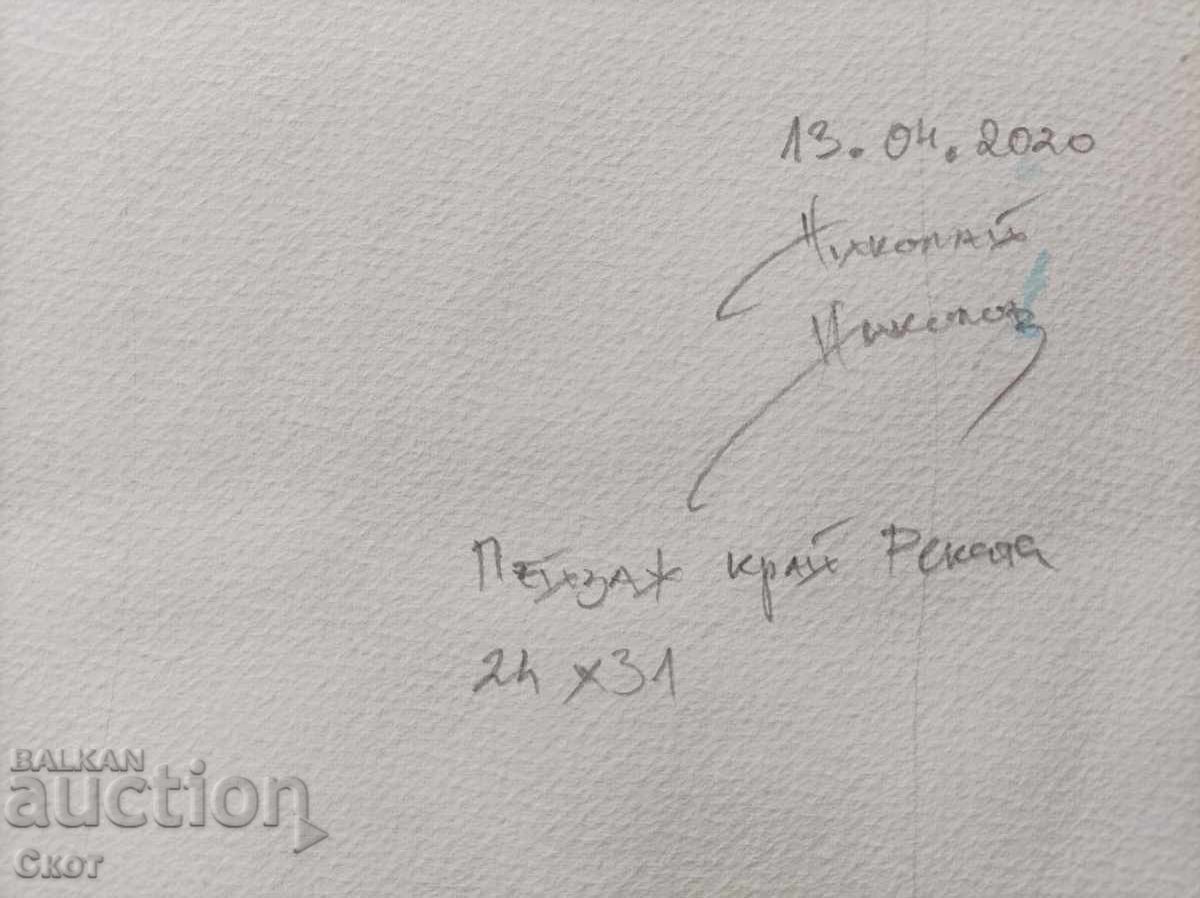 13.04.2020
Николай
Николов
Пейзаж край Реката
24 x 31
BALKAN
auction
Скот